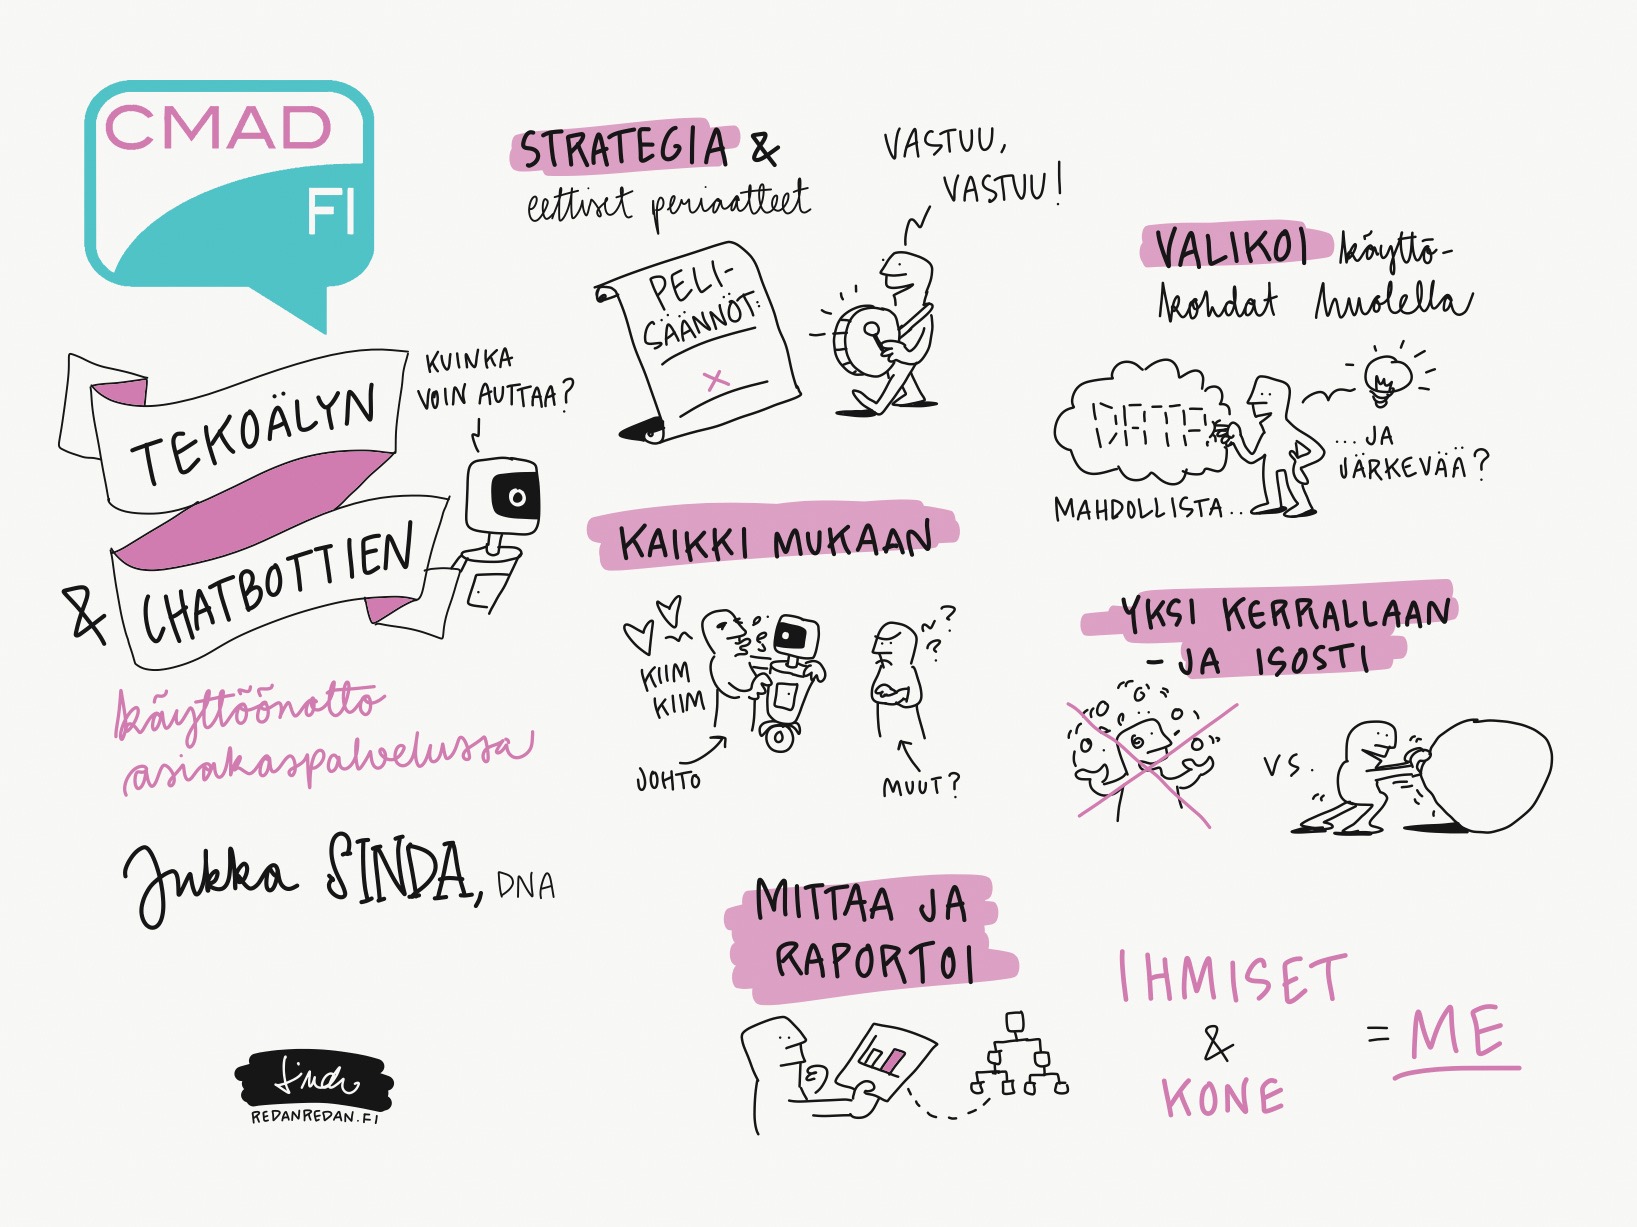 CMAD
FI
TEKOÄLYN
& CHATBOTTIEN
käyttöönotto
asiakaspalvelussa
KUINKA
VOIN AUTTAA?
Jukka SINDA, DNA
REDANREDAN.FI
STRATEGIA &
eettiset periaatteet
PELI-
SÄÄNNÖT:
X
VASTUU,
VASTUU!
VALIKOI käyttö-
kohdat huolella
DATA
MAHDOLLISTA...
...JA
JÄRKEVÄÄ?
KAIKKI MUKAAN
KIIM
KIIM
JOHTO
???
MUUT?
YKSI KERRALLAAN
- JA ISOSTI
VS.
MITTAA JA
RAPORTOI
IHMISET
&
KONE
= ME